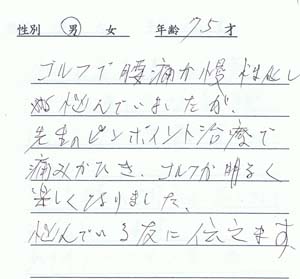 性別 男 女 年齢 75 才
ゴルフで腰痛が慢性化し
悩んでいましたが、
先生のピンポイント治療で
痛みがひき、ゴルフが明るく
楽しくなりました、
悩んでいる友に伝えます